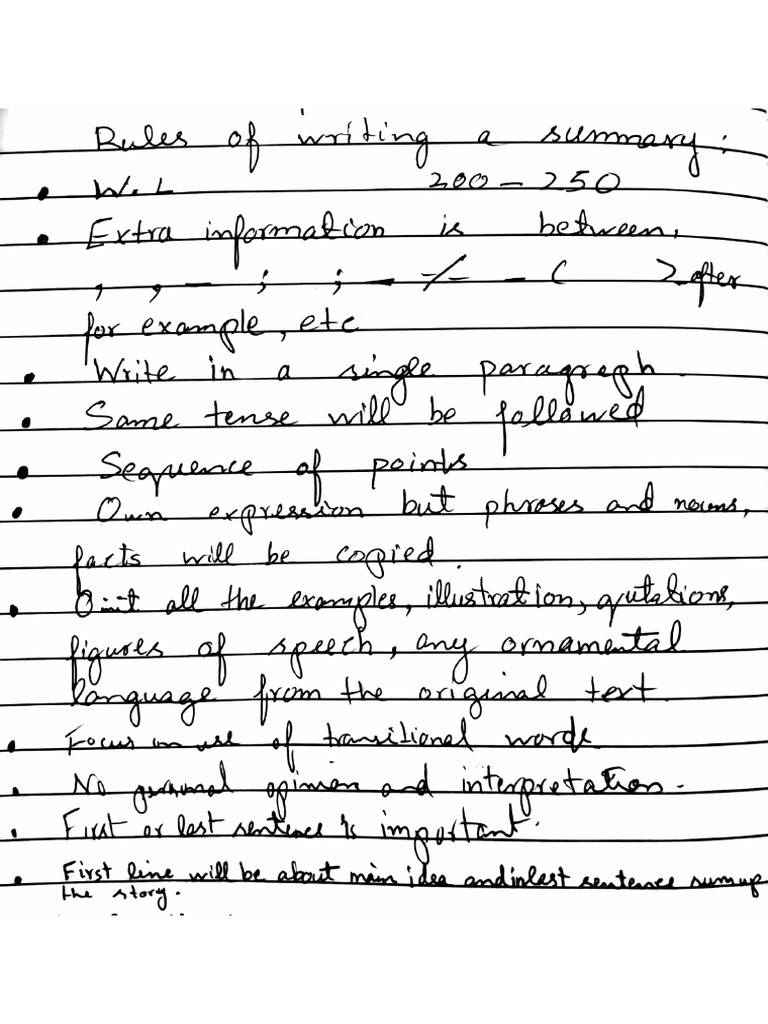 Rules of writing a summary:
• W.L 200 – 250
• Extra information is between,
, , – ; ; – -/- – ( ) after
for example, etc
• Write in a single paragraph.
• Same tense will be followed
• Sequence of points
• Own expression but phrases and nouns,
facts will be copied.
• Omit all the examples, illustration, qutations,
figures of speech, any ornamental
language from the original text
• Focus on use of transitional words
• No personal opinion and interpretation.
• First or last sentence is important.
• First line will be about main idea and in last sentence sum up
the story.